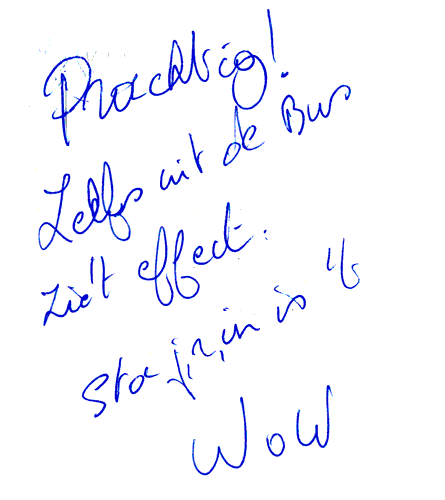 Prachtig!
Zelfs uit de Bus
zie 't effect.
Sta je, in is 't
WoW